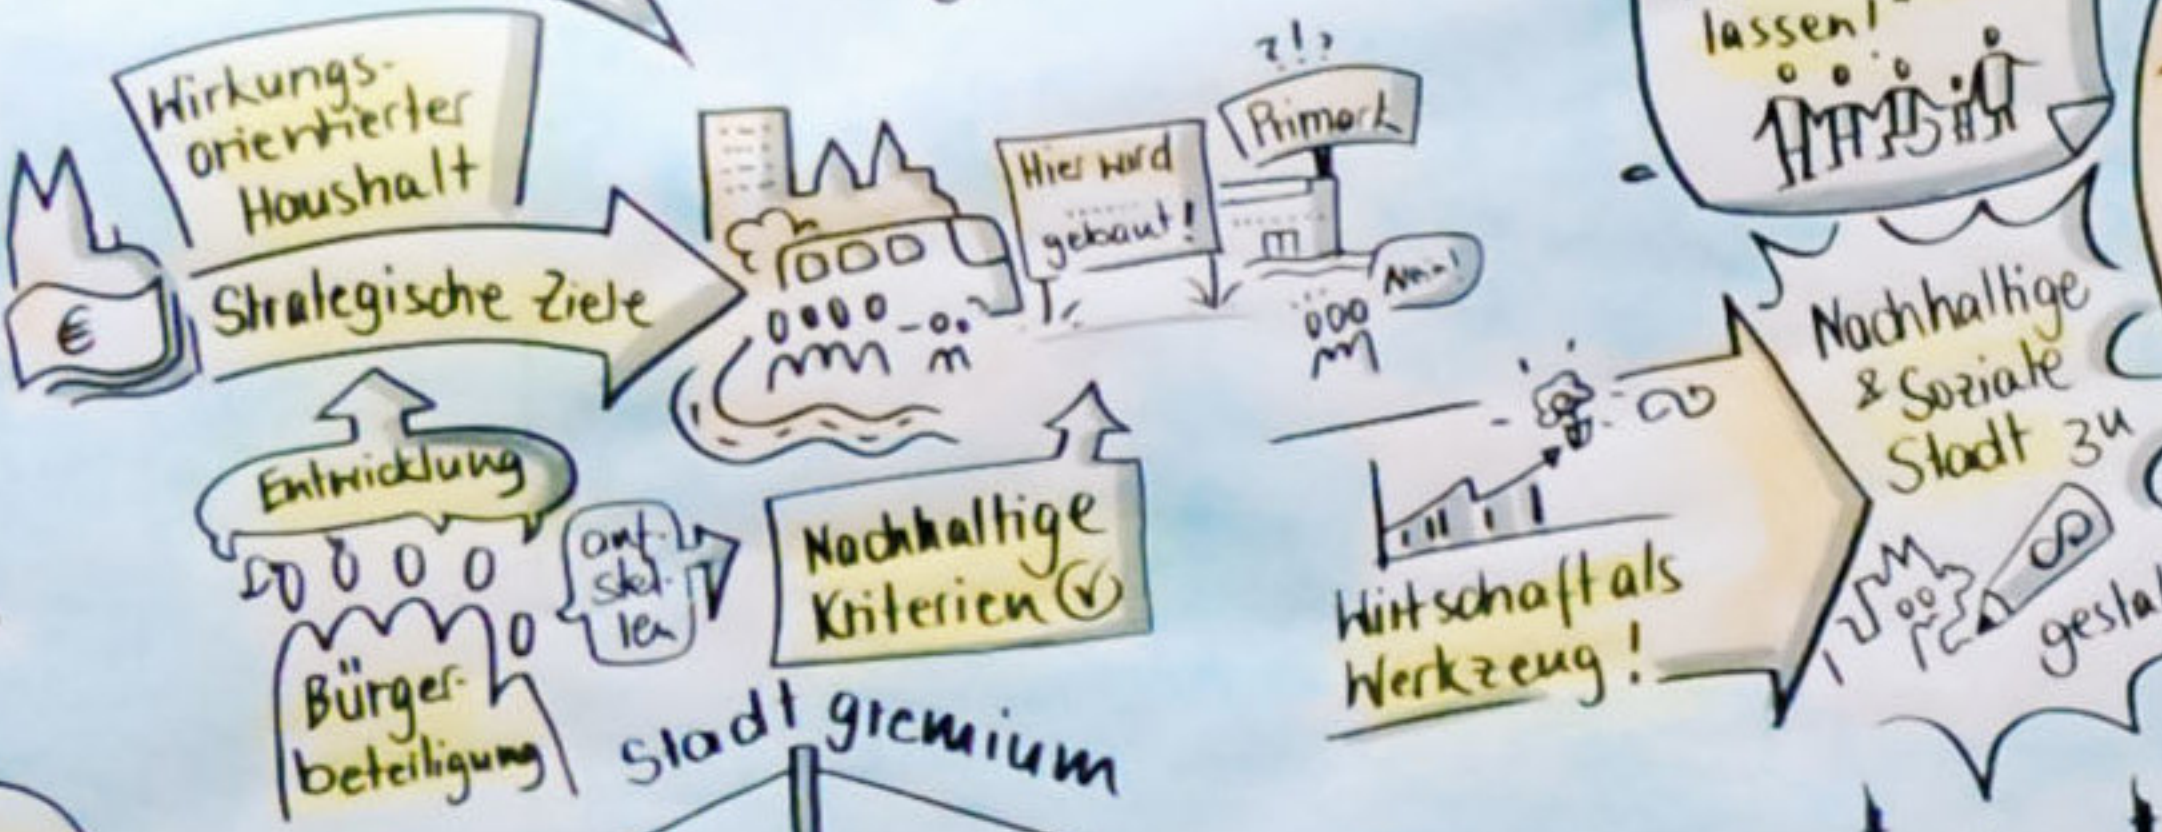 Wirkungs-
orientierter
Haushalt
€
Strategische Ziele
Entwicklung
Bürger-
beteiligung
auf-
stel-
len
Nachhaltige
Kriterien
Stadtgremium
Hier wird
gebaut!
?!?
Primark
lassen!
Wirtschaft als
Werkzeug!
Nachhaltige
& Soziale
Stadt zu
gestal